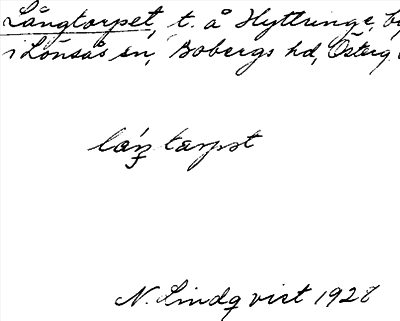 Långtorpet, t. å Hyttringe, by
i Lönsås sn, Bobergs hd, Österg
N. Lindqvist 1928